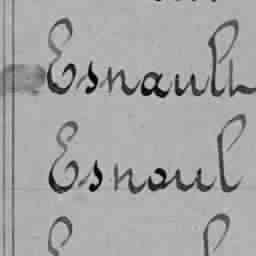 Esnault
Esnoul